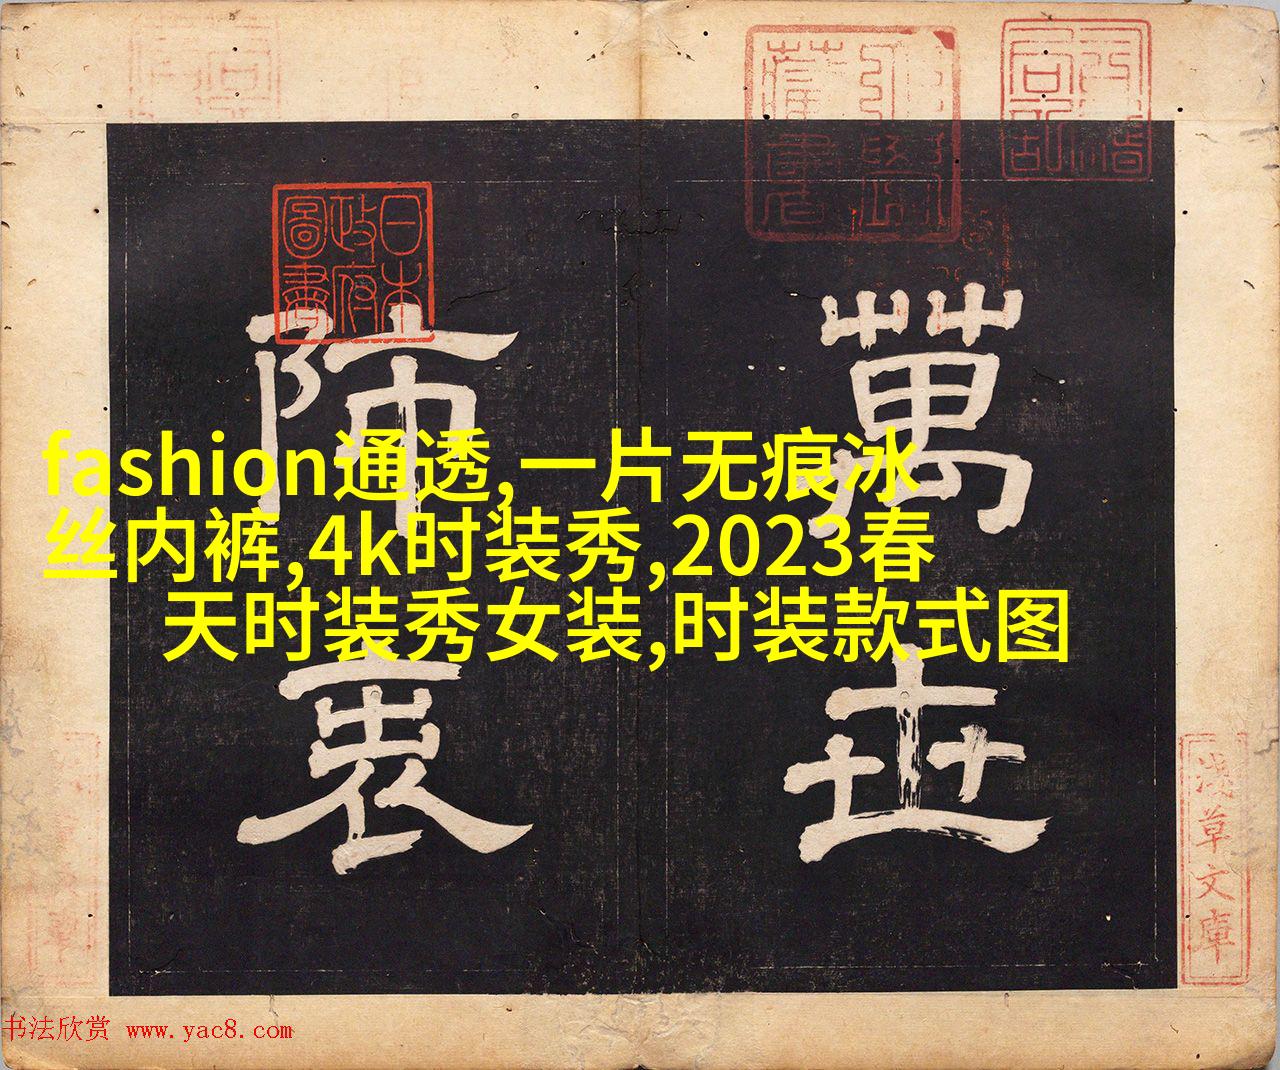 fashion通透,一片无痕冰
丝内裤,4k时装秀,2023春
天时装秀女装,时装款式图
萬世
師表
日本
政府
圖書
淺草文庫
书法欣赏 www.yac8.com